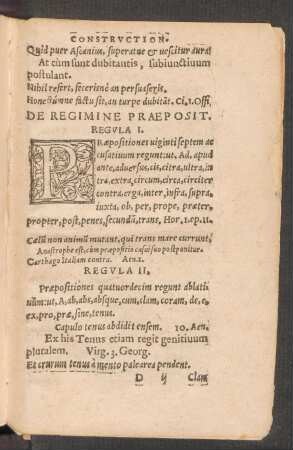 CONSTRVCTION.
Quid puer Ascanius, superatne & uescitur aura?
At cùm sunt dubitantis, subiunctiuum
postulant.
Nihil refert, fecerisne an persuaseris.
Honestúmne factu sit, an turpe dubitāt. Ci.1.Offi.
DE REGIMINE PRAEPOSIT.
REGVLA I.
PRæpositiones uiginti septem ac
cusatiuum regunt: ut. Ad, apud
ante, aduersus, cis, citra, ultra, in
tra, extra, circum, circa, circiter
contra, erga, inter, infra, supra,
iuxta, ob, per, prope, præter,
propter, post, penes, secundū, trans, Hor.1.ep.11.
Cælū non animū mutant, qui trans mare currunt.
Anastrophe est, cùm præpositio casui suo postponitur.
Carthago Italiam contra. Aen.1.
REGVLA II.
Præpositiones quatuordecim regunt ablati
uum: ut. A, ab, abs, absque, cum, clam, coram, de, e,
ex, pro, præ, sine, tenus.
Capulo tenus abdidit ensem. 10. Aen.
Ex his Tenus etiam regit genitiuum
pluralem. Virg. 3. Georg.
Et crurum tenus à mento palearea pendent.
D ij Clam